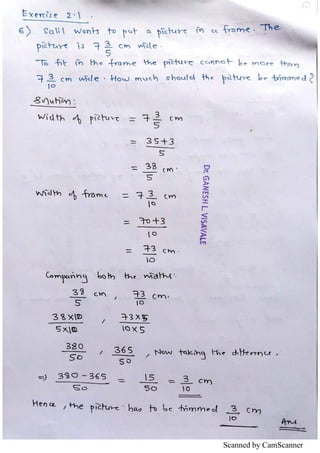 Exercise 2.1.
6) Salil wants to put a picture in a frame. The
picture is 7 3/5 cm wide.
To fit in the frame the picture cannot be more than
7 3/10 cm wide. How much should the picture be trimmed?
Solution:
Width of picture = 7 3/5 cm
= 35+3/5
= 38/5 cm.
Width of frame = 7 3/10 cm
= 70+3/10
= 73/10 cm.
Dr. GANESH L. VISAVALE
Comparing both the widths.
38/5 cm , 73/10 cm.
38×10/5×10 , 73×5/10×5
380/50 , 365/50 , Now taking the difference.
⇒ 380-365/50 = 15/50 = 3/10 cm
Hence, the picture has to be trimmed 3/10 cm
Ans
Scanned by CamScanner